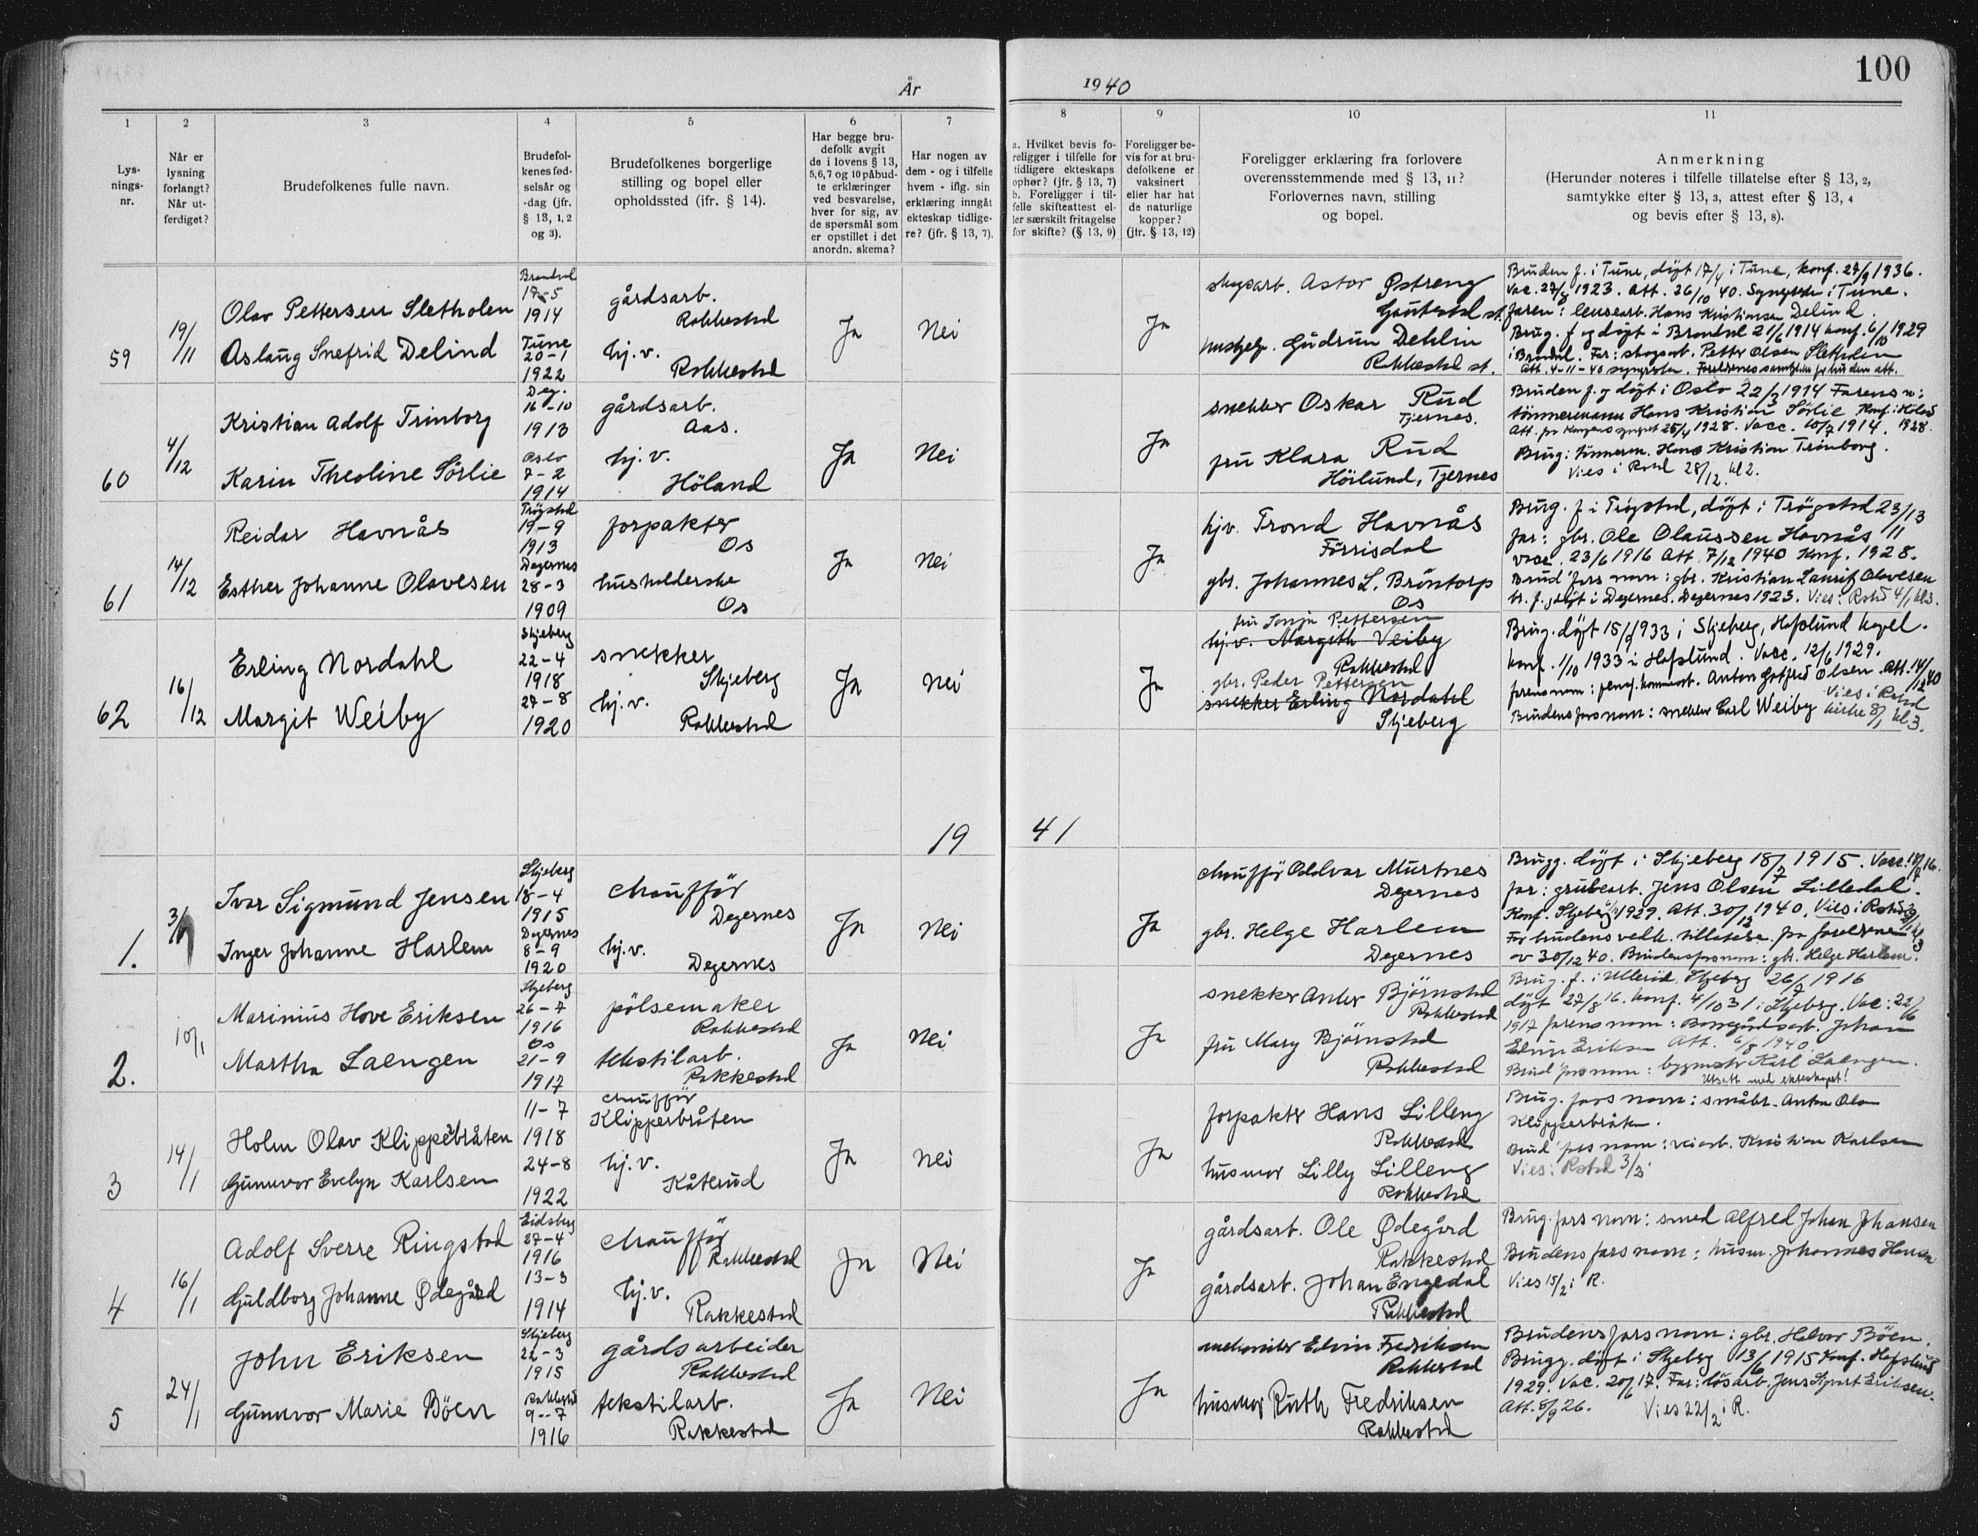 År 1940
100
1 2 3 4 5 6 7 8 9 10 11
Lys-
nings-
nr.
Når er
lysning
forlangt?
Når ut-
ferdiget?
Brudefolkenes fulle navn.
Brudefol-
kenes fød-
selsår og
-dag (jfr.
§ 13, 1, 2
og 3).
Brudefolkenes borgerlige
stilling og bopel eller
opholdssted (ifr. § 14).
Har begge bru-
defolk avgit
de i lovens § 13,
5,6,7 og 10 påbud-
te erklæringer
ved besvarelse,
hver for sig, av
de spørsmål som
er opstillet i det
anordn. skema?
Har nogen av
dem - og i tilfelle
hvem - iflg. sin
erklæring inngåt
ekteskap tidlige-
re? (jfr. § 13, 7).
a. Hvilket bevis fo-
religger i tilfelle for
tidligere ekteskaps
ophør? (jfr. § 13, 7)
b. Foreligger i til-
felle skifteattest el-
ler særskilt fritagelse
for skifte? (§ 13, 9)
Foreligger be-
vis for at bru-
defolkene er
vaksinert
eller har hat
de naturlige
kopper?
(jfr. § 13, 12)
Foreligger erklæring fra forlovere
overensstemmende med § 13, 11?
Forlovernes navn, stilling
og bopel.
Anmerkning
(Herunder noteres i tilfelle tillatelse efter § 13, 2,
samtykke efter § 13, 3, attest efter § 13, 4
og bevis efter § 13, 8).
59
19/11
Olav Pettersen Sletholen
Aslaug Snefrid Delind
17-5
1914
Tune
20-1
1922
gårdsarb.
Rakkestad
hj.v.
Rakkestad
Ja
Nei
Ja
skogsarb. Astor Østreng
Gautestad st.
hushjelp. Gudrun Dehlin
Rakkestad st.
Bruden f. i Tune, døpt 17/4 i Tune, konf. 27/9 1936.
Vac. 27/8 1923. Att. 26/10 40. Sognepr. i Tune.
faren: lensearb. Hans Kristiansen Delind.
Brug. f. og døpt i 21/6 1914 konf. 6/10 1929
Far: skogsarb. Petter Olsen Sletholen
Att. 4-11-40 sognepr.
60
4/12
Kristian Adolf Trinborg
Karin Theoline Sørlie
Deg.
16-10
1913
Oslo
7-2
1914
gårdsarb.
Aas.
hj.v.
Höland
Ja
Nei
Ja
snekker Oskar Rud
Tjernes.
fru Klara Rud
Höilund, Tjernes
Bruden f. og døpt i Oslo 22/3 1914 Farens n:
tömmermann Hans Kristian Sørlie Konf. i Höland
1928. Vacc. 10/7 1914. 1928.
Brug: tömmerm. Hans Kristian Trinborg.
Vies i Rstd 28/12. kl 2.
61
14/12
Reidar Havnås
Esther Johanne Olavesen
Trøgstad
19-9
1913
Degernes
28-3
1909
forpakter
Os
husholderske
Os
Ja
Nei
Ja
hjv. Trond Havnås
Förrisdal
gbr. Johannes L. Bröntorp
Os
Brug. f. i Trøgstad, døpt i Trøgstad 23/11 13
far: gbr. Ole Olaussen Havnås
vacc. 23/6 1916 Att. 7/12 1940 Konf. 1928.
Brud fars navn: gbr. Kristian Laurits Olavesen
br. f. døpt i Degernes. Degernes 1923. Vies: Rstd 4/1 kl 3.
62
16/12
Erling Nordahl
Margit Weiby
Skjeberg
22-4
1918
27-8
1920
snekker
Skjeberg
hj.v.
Rakkestad
Ja
Nei
Ja
fru Sonja Pettersen
hj.v. Margith Veiby
Rakkestad
gbr. Peder Pettersen
snekker Erling Nordahl
Skjeberg
Brug. døpt 1933 i Skjeberg, Hafslund kapel.
konf. 1/10 1933 i Hafslund. Vacc. 12/6 1929.
farens navn: Anton Gotfred Olsen. Att. 14/12 40
Brudens fars navn: snekker Carl Weiby Vies i Rstd
kirke 8/1 kl 3.
19 41
1.
Ivar Sigmund Jensen
Inger Johanne Harlem
Skjeberg
18-4
1915
Degernes
8-9
1920
Chauffør
Degernes
hj.v.
Degernes
Ja
Nei
Ja
chauffør Oddvar Murtnes
Degernes
gbr. Helge Harlem
Degernes
Brugg. døpt i Skjeberg 18/7 1915. Vacc.
far: grubearb. Jens Olsen Lilledal.
Konf. Skjeberg 1929. Att. 30/12 1940. Vies i Rstd
For brudens vedk. tillatelse fra foreldrene
av 30/12 40. Brudens fars navn: gbr. Helge Harlem.
2.
10/1
Marinius Hove Eriksen
Martha Laengen
Skjeberg
26-7
1916
Os
21-9
1917
pölsemaker
Rakkestad
tekstilarb.
Rakkestad
Ja
Nei
Ja
snekker Anker Björnstad
Rakkestad
fru Mary Björnstad
Rakkestad
Brug. f. i Ullerøi, Skjeberg 26/7 1916
døpt 27/8 16. konf. 4/10 31 i Skjeberg. Vac: 22/6
1917 farens navn: Borregårdsarb. Johan
Edvin Eriksen Att. 6/8 1940
Brud fars navn: bygmstr Karl Laengen.
Utsatt med ekteskapet!
3
14/1
Holm Olav Klipperbråten
Gunnvor Evelyn Karlsen
11-7
1918
24-8
1922
chauffør
Klipperbråten
hj.v.
Kåterud
Ja
Nei
Ja
forpakter Hans Lilleng
Rakkestad
husmor Lilly Lilleng
Rakkestad
Brug. fars navn: småbr. Anton Olav
Klipperbråten.
Brud fars navn: veiarb. Kristian Karlsen
Vies: Rstd 3/3
4
16/1
Adolf Sverre Ringstad
Guldborg Johanne Ødegård
Eidsberg
27-4
1916
13-3
1914
Chauffør
Rakkestad
hj.v.
Rakkestad
Ja
Nei
Ja
gårdsarb. Ole Ødegård
Rakkestad
gårdsarb. Johan Engedal
Rakkestad
Brug. fars navn: smed Alfred Johan Johansen
Brudens fars navn: husm. Johannes Hansen
Vies 15/2 i R.
5
24/1
John Eriksen
Gunnvor Marie Böen
Skjeberg
22-3
1915
Rakkestad
9-7
1916
gårdsarbeider
Rakkestad
tekstilarb.
Rakkestad
Ja
Nei
Ja
mekaniker Edvin Fredriksen
Rakkestad
husmor Ruth Fredriksen
Rakkestad
Brudens fars navn: gbr. Halvor Böen.
Brugg. døpt i Skjeberg 13/6 1915 Konf. Hafslund
1929. Vac. 20/6 17. Far: løsarb. Jens Sigvart Eriksen.
Att. 5/9 26. Vies 22/2 i R.